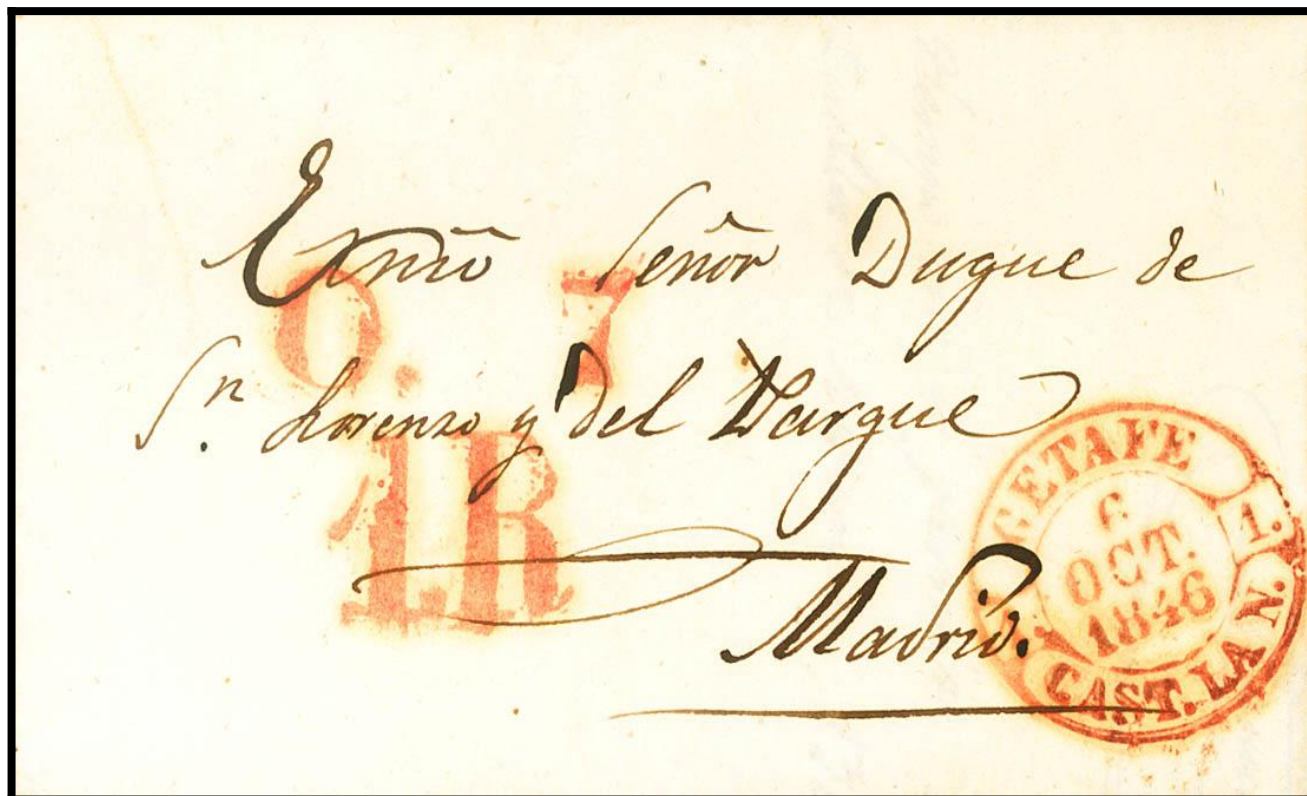 Exmo Señor Duque de
Sn. Lorenzo y del Parque
Madrid.
O. 7.
1R
GETAFE
1.
6
OCT.
1846
CAST. LA N.